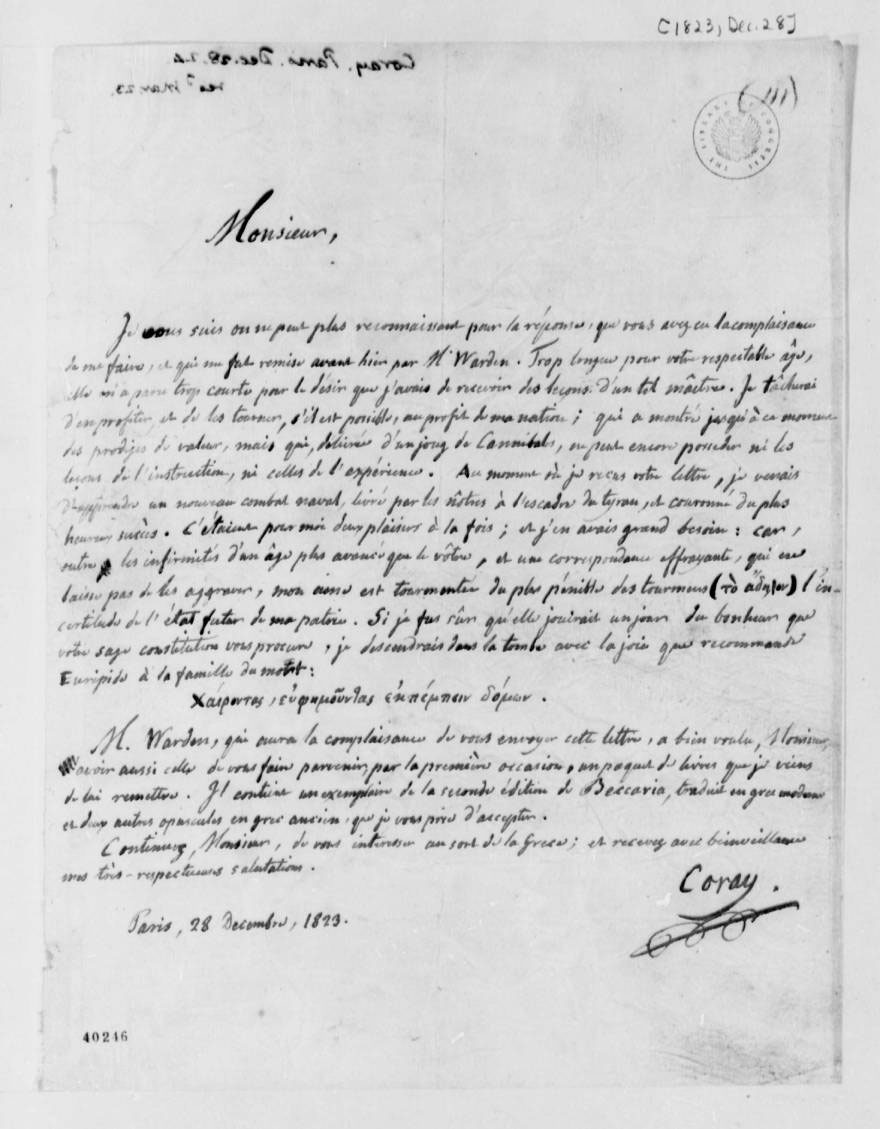 [1823, Dec. 28]
Coray. Paris. Dec. 28. 23.
recd Mar. 23.
(111)
THE LIBRARY OF CONGRESS
Monsieur,
Je vous suis on ne peut plus reconnaissant pour la réponse, que vous avez eu la complaisance
de me faire, et qui me fut remise avant hier par Mr Warden. Trop longue pour votre respectable âge,
elle m'a paru trop courte pour le désir que j'avais de recevoir des leçons d'un tel maître. Je tâcherai
d'en profiter, et de les tourner, s'il est possible, au profit de ma nation; qui a montré jusqu'à ce moment
des prodiges de valeur, mais qui, délivrée d'un joug de Cannibals, ne peut encore posséder ni les
leçons de l'instruction, ni celles de l'expérience. Au moment où je reçus votre lettre, je venais
d'apprendre un nouveau combat naval, livré par les nôtres à l'escadre du tyran, et couronné du plus
heureux succès. C'étaient pour moi deux plaisirs à la fois; et j'en avais grand besoin: car,
outre les infirmités d'un âge plus avancé que le vôtre, et une correspondance effrayante, qui ne
laisse pas de les aggraver, mon ame est tourmentée du plus pénible des tourmens (τὸ ἄδηλον) l'in-
certitude de l'état futur de ma patrie. Si je fus sûr qu'elle jouirait un jour du bonheur que
votre sage constitution vous procure, je descendrais dans la tombe avec la joie que recommande
Euripide à la famille du mort:
Χαίροντας, εὐφημοῦντας ἐκπέμπειν δόμων.
M. Warden, qui aura la complaisance de vous envoyer cette lettre, a bien voulu, Monsieur,
avoir aussi celle de vous faire parvenir, par la première occasion, un paquet de livres que je viens
de lui remettre. Il contient un exemplaire de la seconde édition de Beccaria, traduit en grec moderne
et deux autres opuscules en grec ancien, que je vous prie d'accepter.
Continuez, Monsieur, de vous intéresser au sort de la Grece; et recevez avec bienveillance
mes très-respectueuses salutations.
Coray.
Paris, 28 Decembre, 1823.
40246